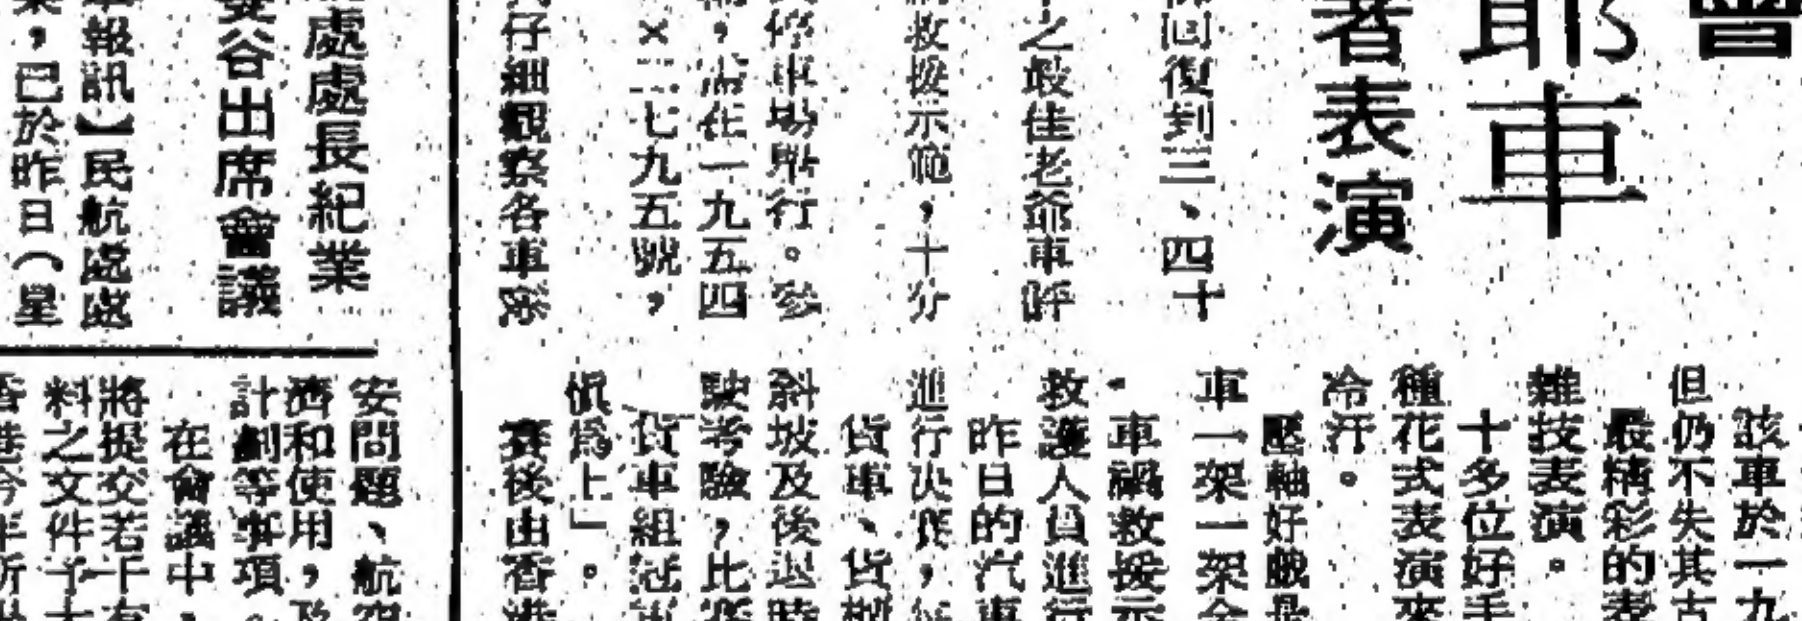 會
耶車
者表演
回復到三、四十
之最佳老爺車評
救援示範，十分
停車場舉行。參
在一九五四
×二七九五號，
仔細觀察各車形
該車於一九
但仍不失其古
最精彩的表
雜技表演。
十多位好手
種花式表演來
冷汗。
壓軸好戲是
車一架一架全
車禍救援示
救護人員進行
昨日的汽車
進行決賽，
貨車、貨櫃
斜坡及後退時
駛考驗，比賽
貨車組冠軍
慎為上」。
賽後由香港
處處長紀業
委谷出席會議
報訊】民航處處
，已於昨日（星
安問題、航空
濟和使用，及
計劃等事項。
在會議中，
將提交若干有
料之文件予大
香港今年所